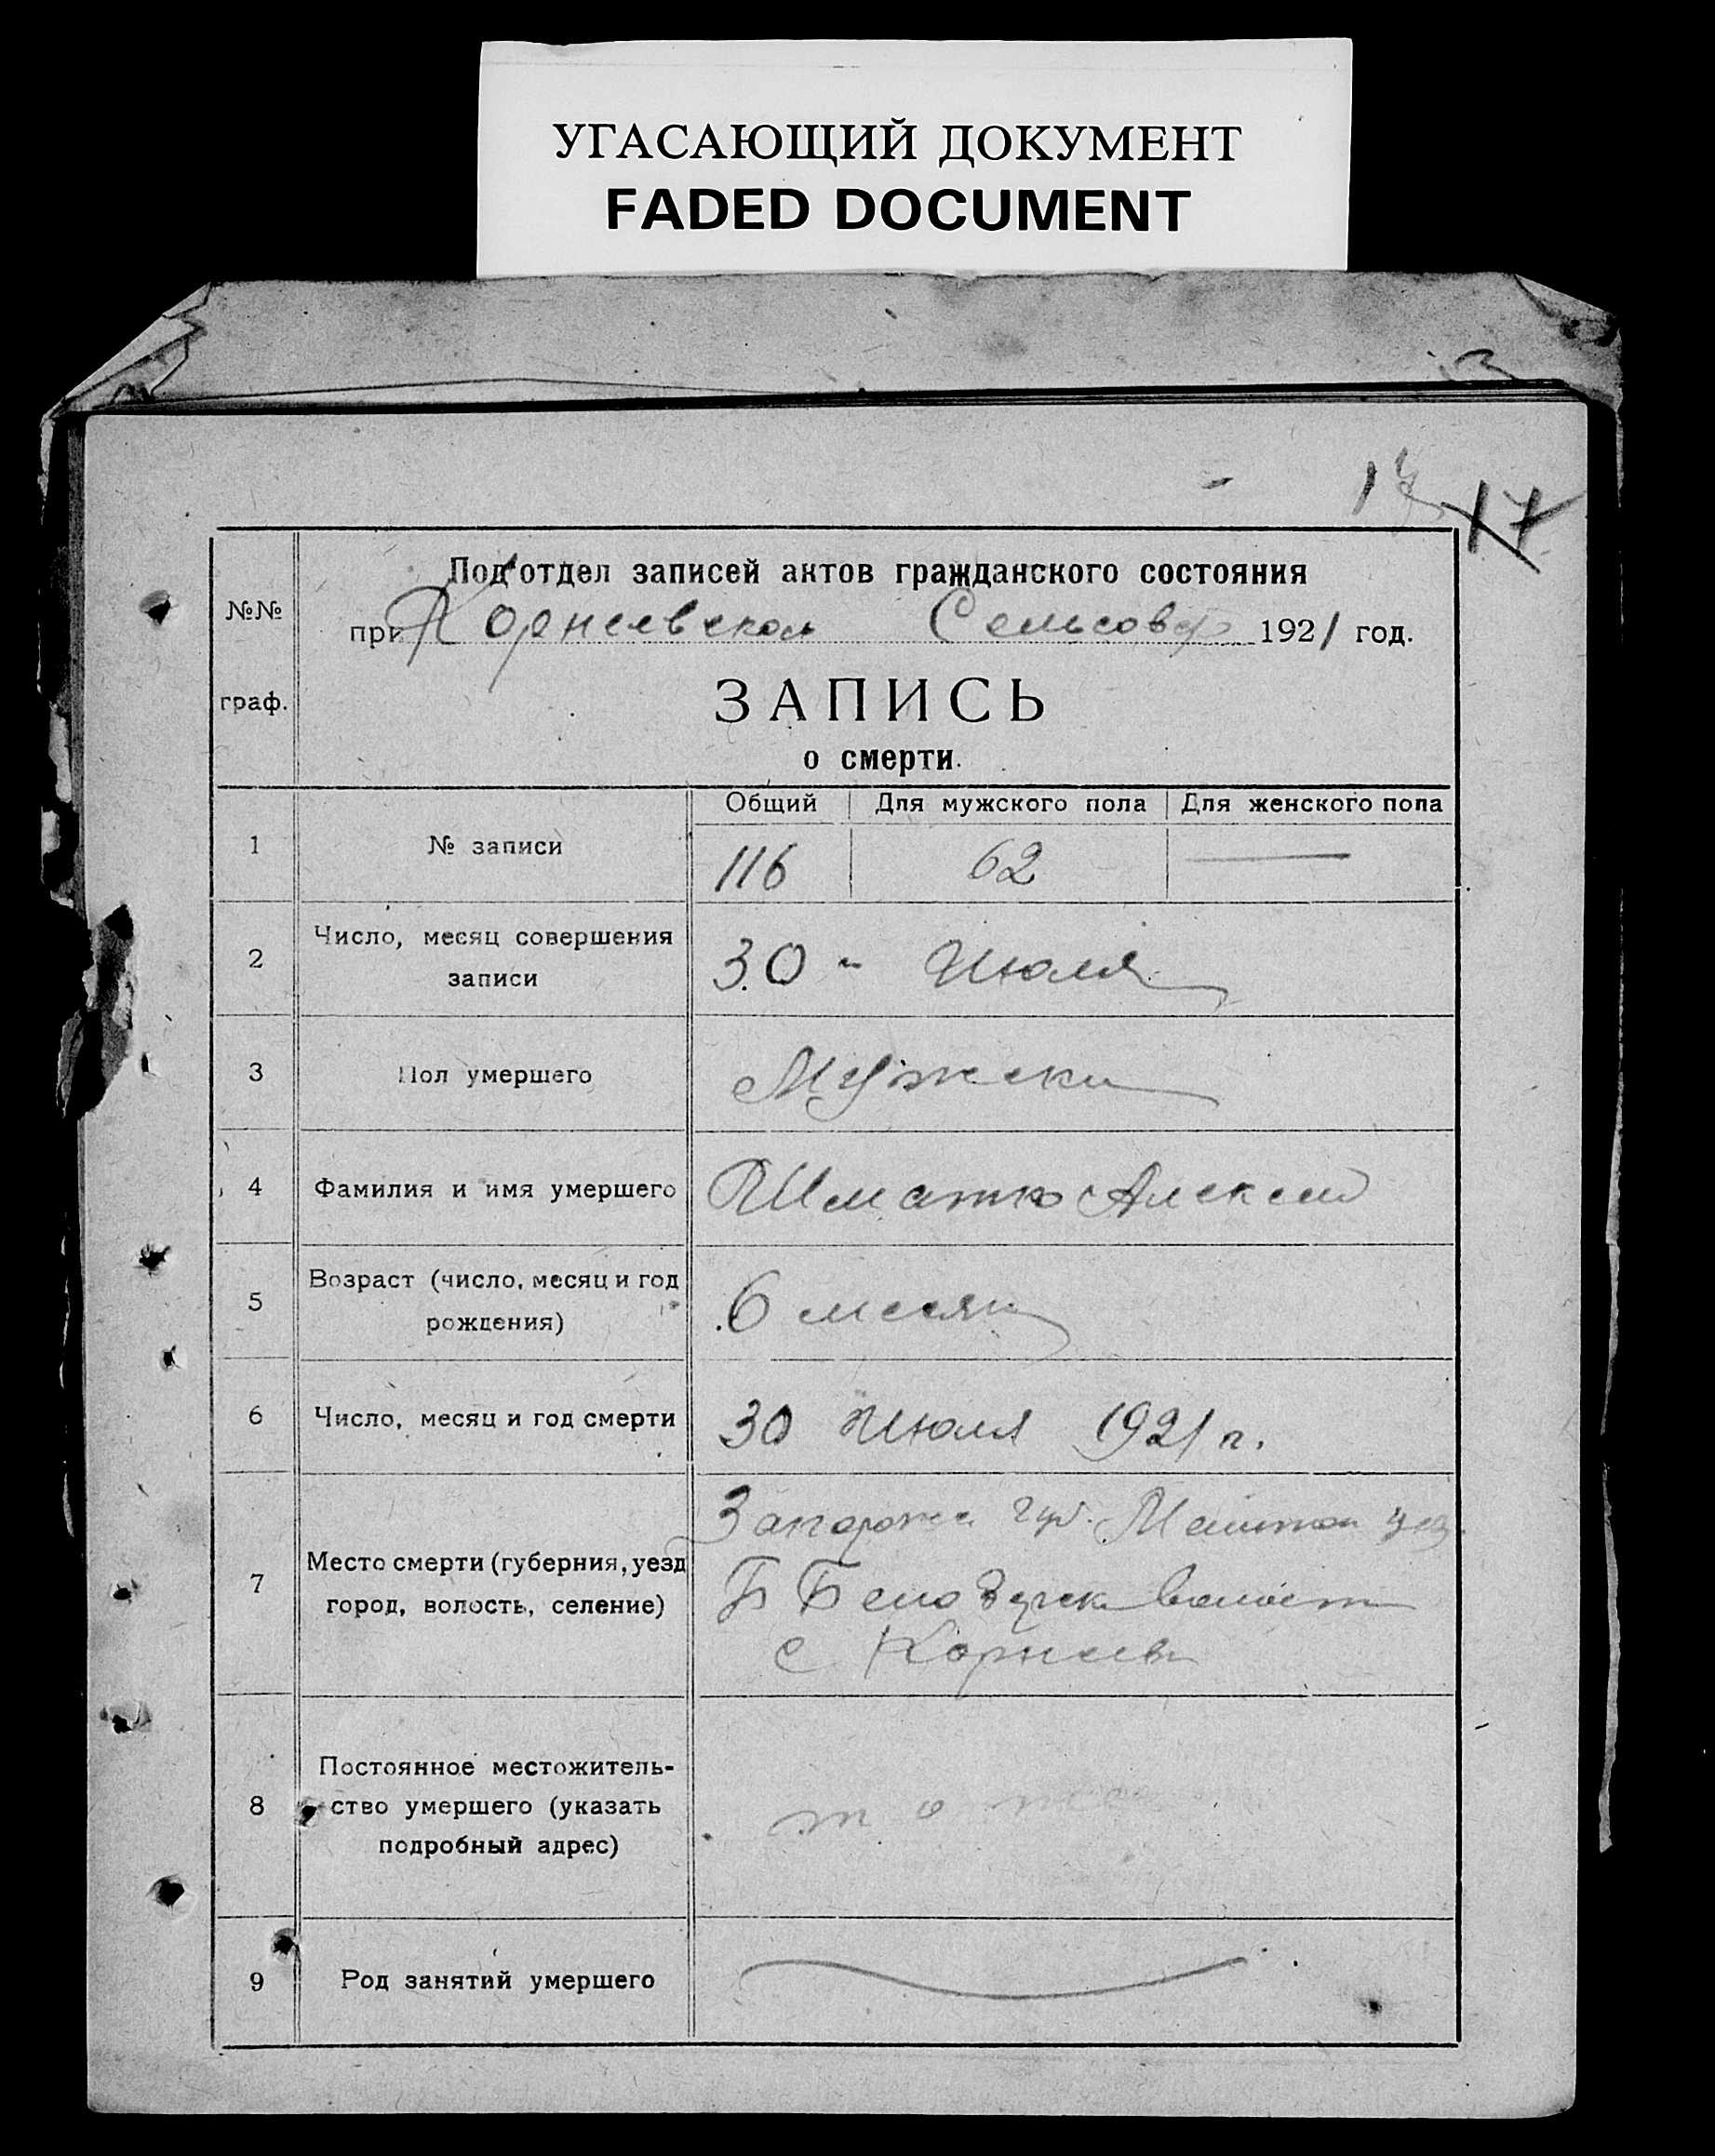 УГАСАЮЩИЙ ДОКУМЕНТ
FADED DOCUMENT
17
Подотдел записей актов гражданского состояния
при Корнеевском Сельсовет 1921 год.
№№
граф.
ЗАПИСЬ
о смерти.
Общий Для мужского пола Для женского пола
1 № записи 116 62 —
2 Число, месяц совершения
записи
30 - Июля
3 Пол умершего Мужски
4 Фамилия и имя умершего Шматко Алексей
5 Возраст (число, месяц и год
рождения)
6 месяц
6 Число, месяц и год смерти 30 Июля 1921 г.
7 Место смерти (губерния, уезд
город, волость, селение)
Запорожск губ. уез.
Б Белозерск волост
с Корнеев
8 Постоянное местожитель-
ство умершего (указать
подробный адрес)
то же
9 Род занятий умершего